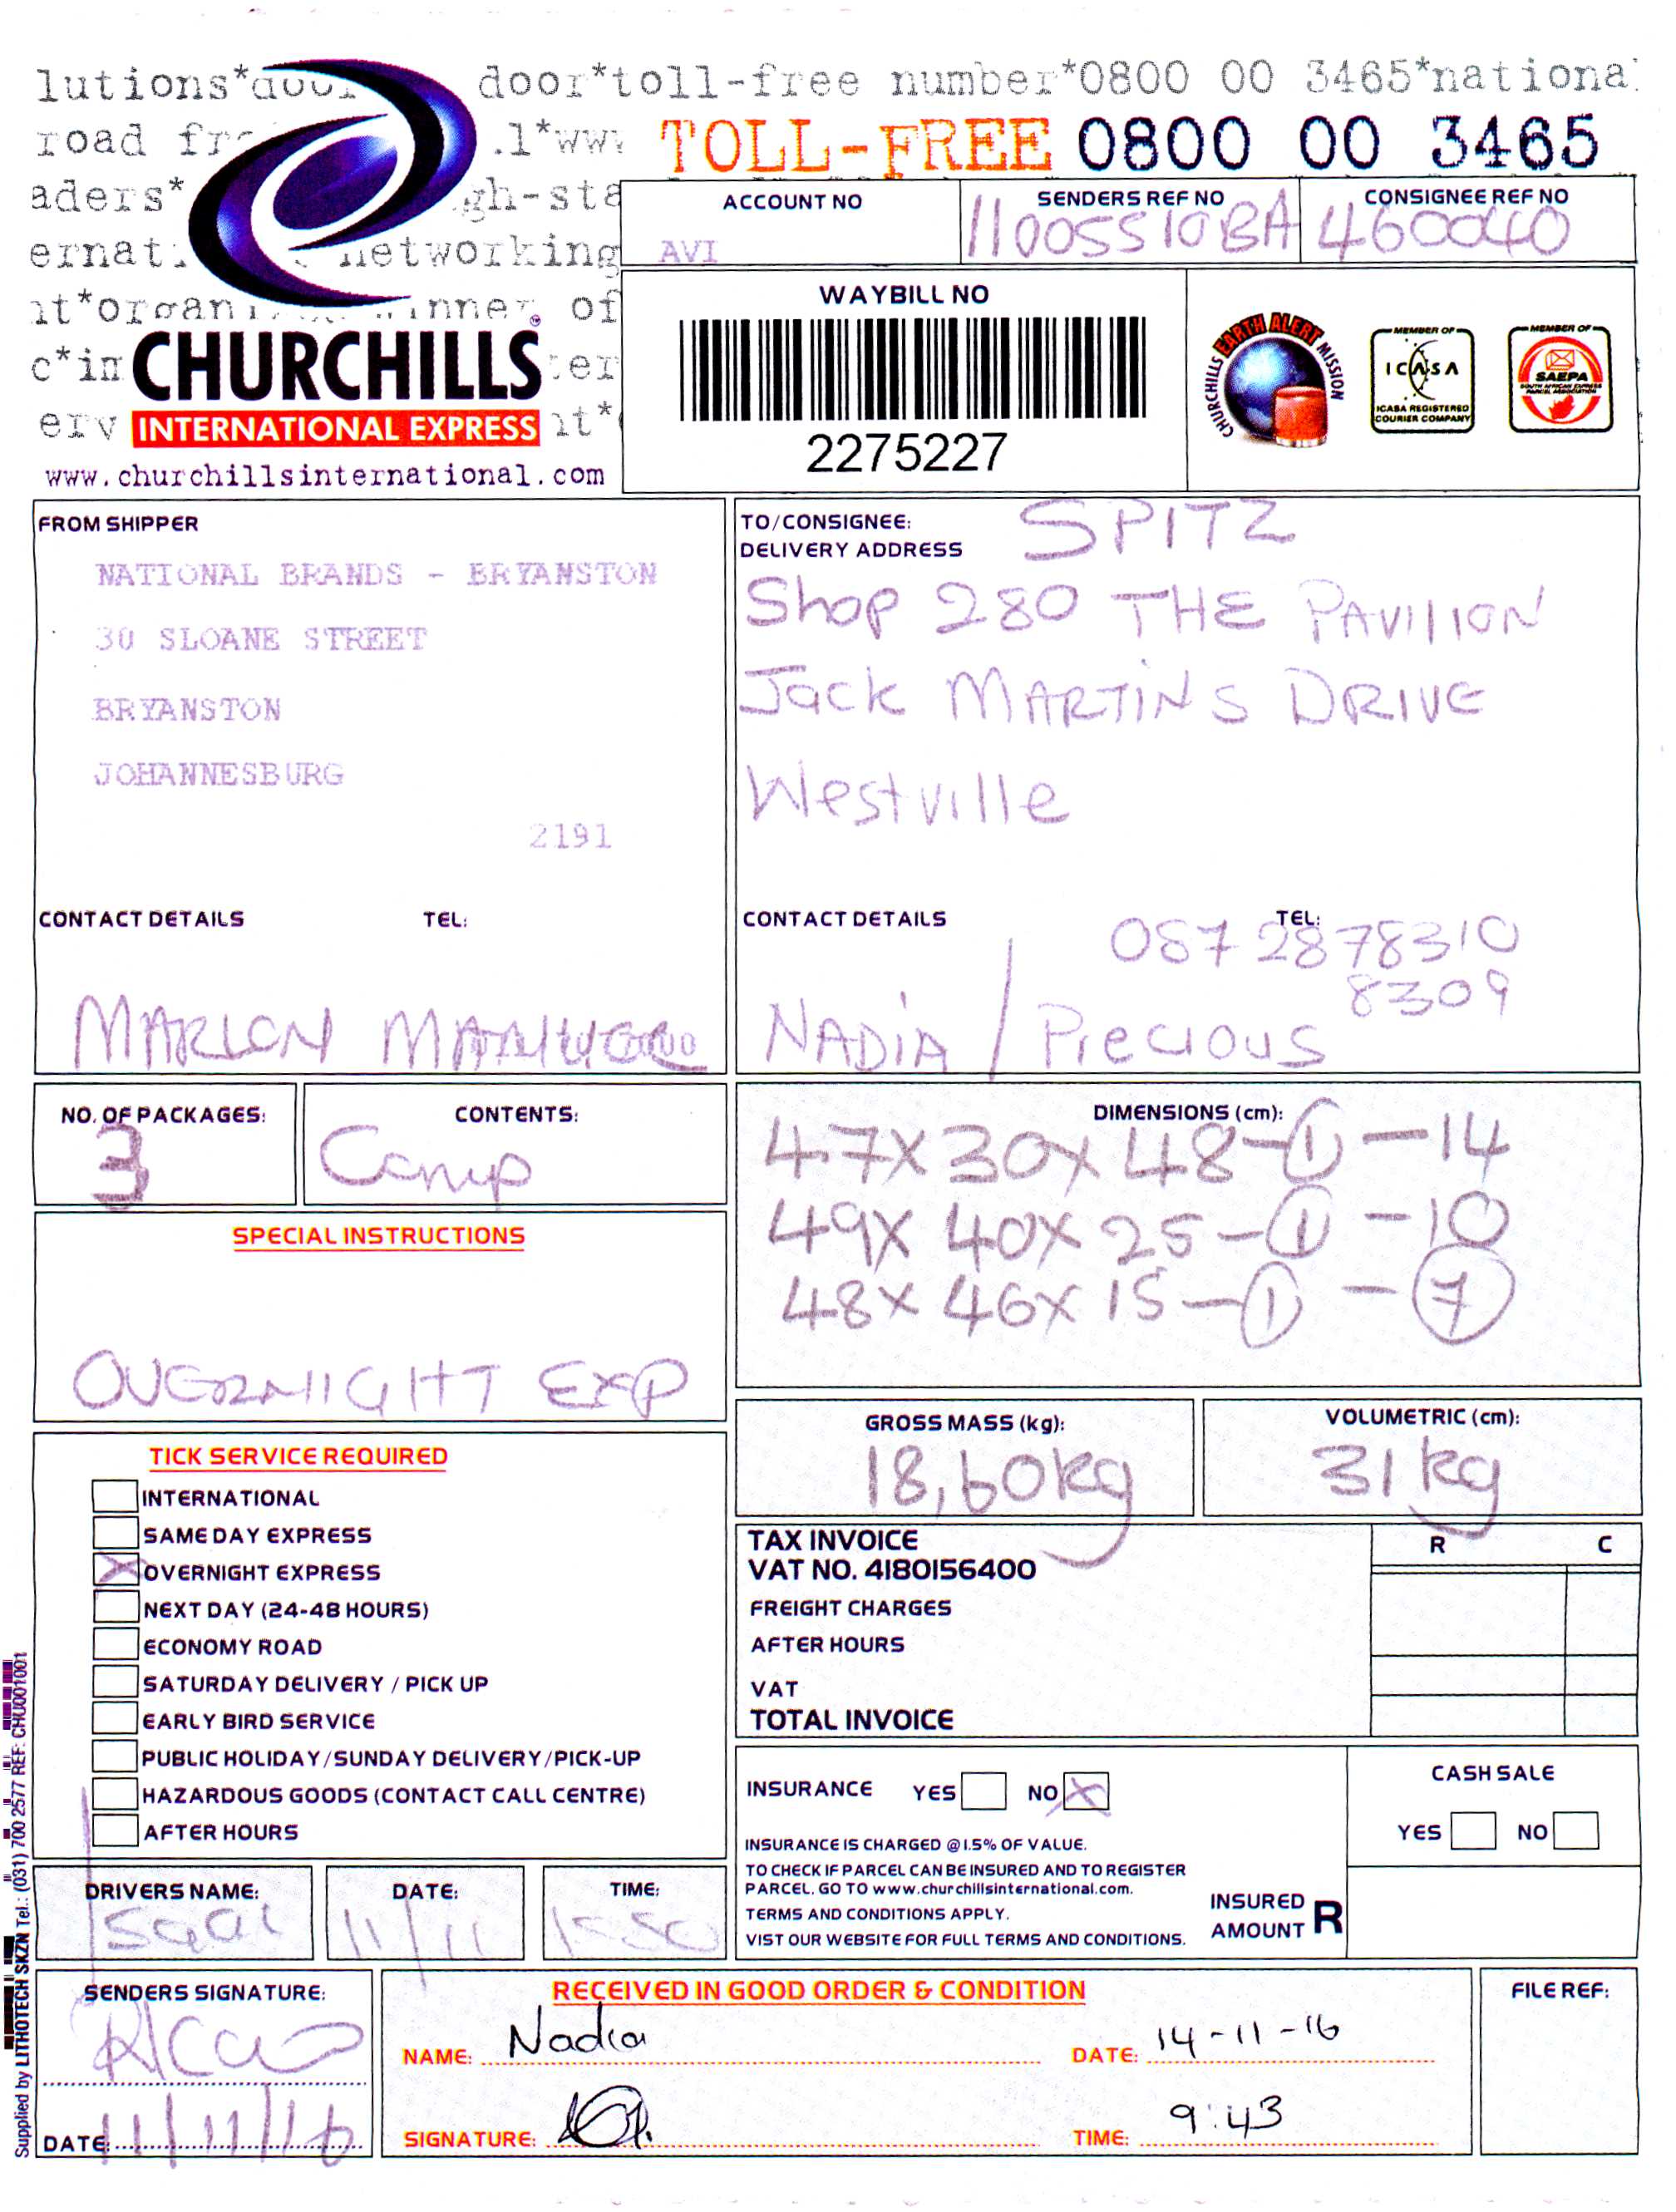 lutions*door door*toll-free number*0800 00 3465*national
road fre .l*www TOLL-FREE 0800 00 3465
aders* gh-sta
ernat networking
nt*organ inner of
c*in ter
erv nt*
CHURCHILLS
INTERNATIONAL EXPRESS
www.churchillsinternational.com
ACCOUNT NO
AVI
SENDERS REF NO
11005510BA
CONSIGNEE REF NO
460040
WAYBILL NO
2275227
CHURCHILLS EARTH ALERT MISSION
MEMBER OF
ICASA
ICASA REGISTERED
COURIER COMPANY
MEMBER OF
SAEPA
SOUTH AFRICAN EXPRESS
PARCEL ASSOCIATION
FROM SHIPPER
NATIONAL BRANDS - BRYANSTON
30 SLOANE STREET
BRYANSTON
JOHANNESBURG
2191
CONTACT DETAILS TEL:
MARLON
TO/CONSIGNEE: SPITZ
DELIVERY ADDRESS
Shop 280 THE PAVILION
Jack MARTINS DRIVE
Westville
CONTACT DETAILS TEL:
087 2878310
8309
NADIA / Precious
NO. OF PACKAGES:
3
CONTENTS:
Comp
DIMENSIONS (cm):
47x30x48-1-14
49x40x25-1-10
48x46x15-1-7
SPECIAL INSTRUCTIONS
OVERNIGHT EXP
GROSS MASS (kg):
18,60kg
VOLUMETRIC (cm):
31kg
TICK SERVICE REQUIRED
INTERNATIONAL
SAME DAY EXPRESS
X OVERNIGHT EXPRESS
NEXT DAY (24-48 HOURS)
ECONOMY ROAD
SATURDAY DELIVERY / PICK UP
EARLY BIRD SERVICE
PUBLIC HOLIDAY/SUNDAY DELIVERY/PICK-UP
HAZARDOUS GOODS (CONTACT CALL CENTRE)
AFTER HOURS
TAX INVOICE R C
VAT NO. 4180156400
FREIGHT CHARGES
AFTER HOURS
VAT
TOTAL INVOICE
INSURANCE YES NO X
INSURANCE IS CHARGED @ 1.5% OF VALUE.
TO CHECK IF PARCEL CAN BE INSURED AND TO REGISTER
PARCEL. GO TO www.churchillsinternational.com.
TERMS AND CONDITIONS APPLY.
VIST OUR WEBSITE FOR FULL TERMS AND CONDITIONS.
INSURED
AMOUNT R
CASH SALE
YES NO
DRIVERS NAME:
DATE:
11/11
TIME:
SENDERS SIGNATURE:
DATE: 11/11/16
RECEIVED IN GOOD ORDER & CONDITION
NAME: Nadia
DATE: 14-11-16
SIGNATURE:
TIME: 9:43
FILE REF:
Supplied by LITHOTECH SKZN Tel.: (031) 700 2577 REF: CHU001001